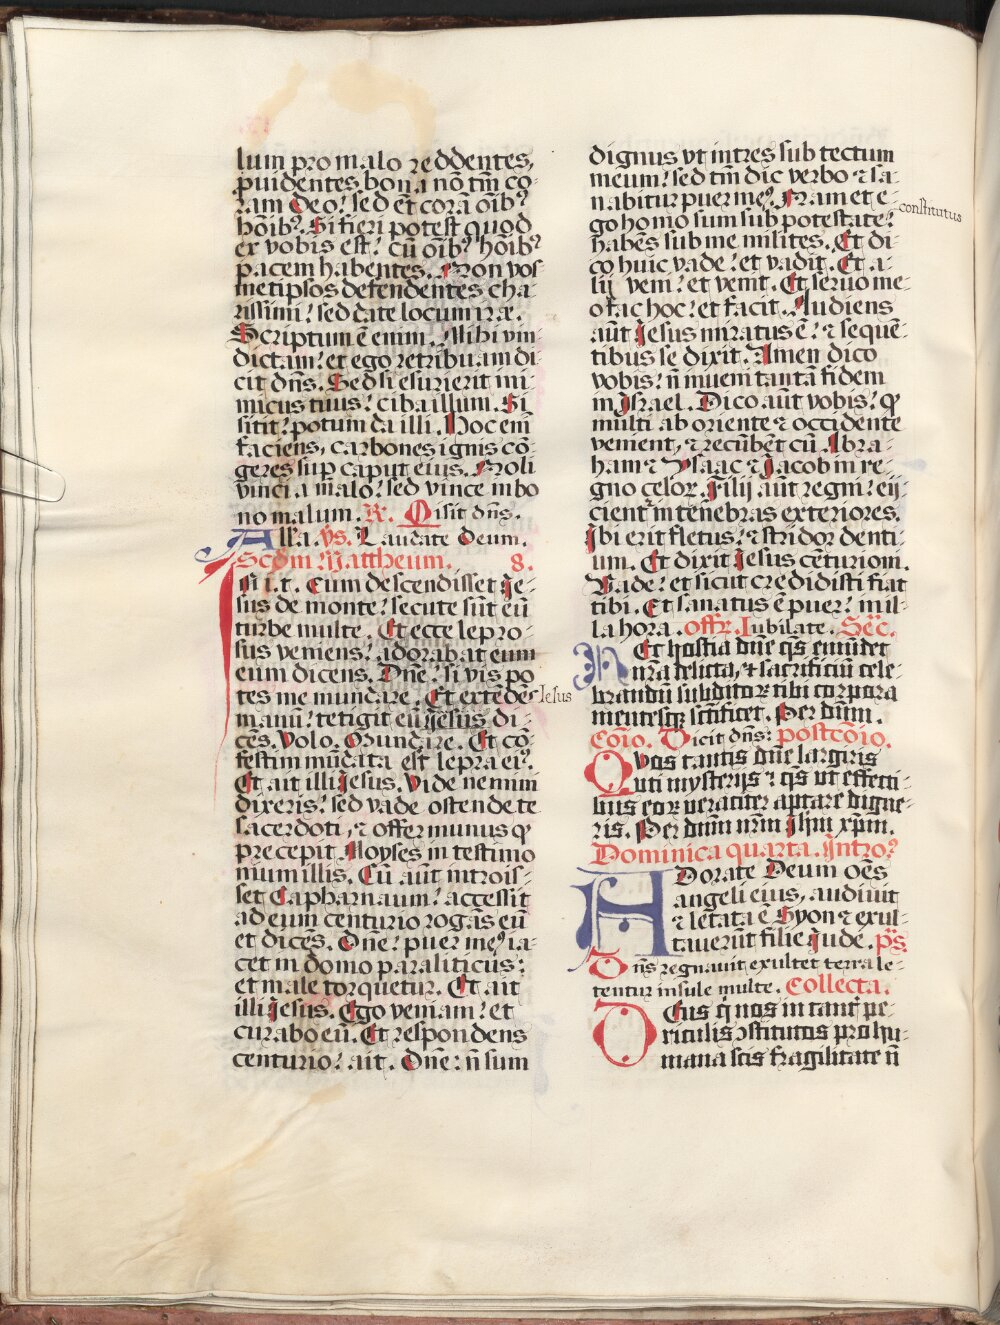 lum pro malo reddentes,
puidentes bona nō tm̄ co-
ram Deo: sed et corā oībꝰ
hōībꝰ. Si fieri potest quod
ex vobis est: cū oībꝰ hōībꝰ
pacem habentes. Non vos
metipsos defendentes cha-
rissimi: sed date locum iræ.
Scriptum ē enim. Mihi vin
dictam: et ego retribuam di-
cit dn̄s. Sed si esurierit ini
micus tuus: ciba illum. Si
sitit: potum da illi. Hoc em̄
faciens, carbones ignis cō-
geres sup caput eius. Noli
vinci a malo: sed vince in bo
no malum. R. Misit dn̄s.
Alla. ꝟs. Laudate Deum.
Scd̄m Mattheum. 8.
In i.t. Cum descendisset Je-
sus de monte: secute sūt eū
turbe multe. Et ecce lepro-
sus veniens: adorabat eum
eum dicens. Dn̄e: si vis po
tes me mundare. Et extēdēs Jesus
manū: tetigit eū Jesus di-
cēs. Volo. Mundare. Et cō-
festim mūdata est lepra eiꝰ.
Et ait illi Jesus. Vide nemini
dixeris: sed vade ostende te
sacerdoti, ⁊ offer munus qͦ
precepit Moyses in testimo
nium illis. Cū aūt introis-
set Capharnaum: accessit
ad eum centurio rogās eū
et dicēs. Dn̄e: puer meꝰ ia-
cet in domo paraliticus:
et male torquetur. Et ait
illi Jesus. Ego veniam: et
curabo eū. Et respondens
centurio: ait. Dn̄e: n̄ sum
dignus vt intres sub tectum
meum: sed tm̄ dic verbo ⁊ sa-
nabitur puer meꝰ. Nam et e-
go homo sum sub potestate: constitutus
habēs sub me milites. Et di-
co huic vade: et vadit. Et a-
lij veni: et venit. Et seruo me
o fac hoc: et facit. Audiens
aūt Jesus miratus ē: ⁊ sequē-
tibus se dixit. Amen dico
vobis: n̄ inueni tantā fidem
in Jsrael. Dico aūt vobis: qͦ
multi ab oriente ⁊ occidente
venient, ⁊ recūbēt cū Abra-
ham ⁊ Ysaac ⁊ Jacob in re-
gno celoꝝ. Filij aūt regni: eij-
cient̄ in tenebras exteriores.
Ibi erit fletus: ⁊ stridor denti-
um. Et dixit Jesus centurioni.
Vade: et sicut credidisti fiat
tibi. Et sanatus ē puer: in il-
la hora. offꝝ. Iubilate. Sēc.
Hec hostia dn̄e qs̄ emūdet
nr̄a delicta, ⁊ sacrificiū cele-
brandū subditoꝝ tibi corpora
mentesqꝫ sctīficet. Per dn̄m.
Cōio. Dicit dn̄s: postcōio.
Quos tantis dn̄e largiris
uti mysterijs: qs̄ ut effecti-
bus eoꝝ ueraciter aptare digne-
ris. Per dn̄m nr̄m Jhm̄ xpm̄.
Dominica quarta. Introꝰ
ADorate Deum oēs
angeli eius, audiuit
⁊ letata ē Syon ⁊ exul-
tauerūt filie Jude. ps̄.
Dn̄s regnauit exultet terra le-
tentur insule multe. Collecta.
Deus q̄ nos in tant̄ pe-
riculis ɔstitutos pro hu-
mana scis fragilitate n̄